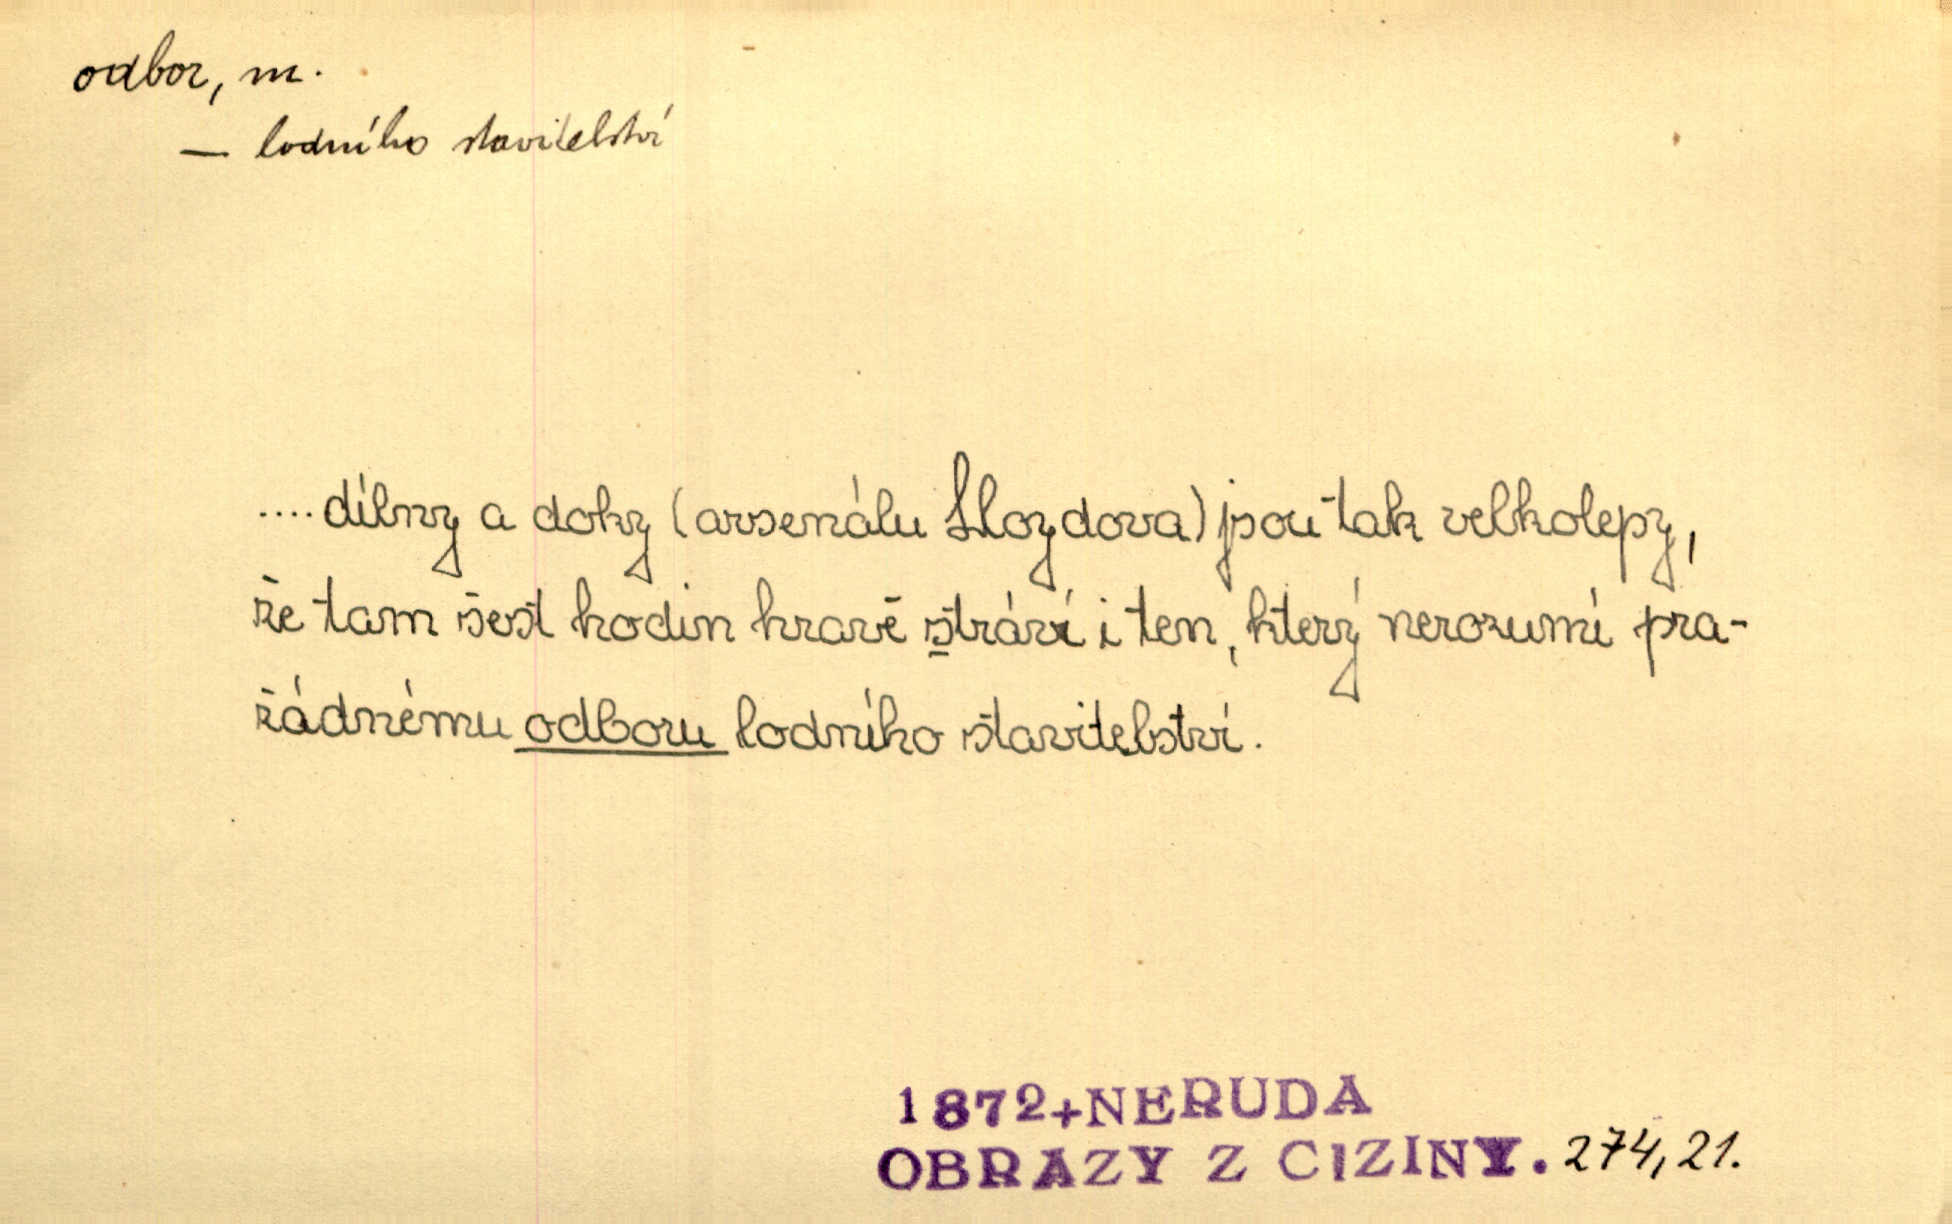 odbor, m.
— lodního stavitelství
....dílny a doky (arsenálu Lloydova) jsou tak velkolepy,
že tam šest hodin hravě stráví i ten, který nerozumí pra-
žádnému odboru lodního stavitelství.
1872+NERUDA
OBRAZY Z CIZINY. 274,21.